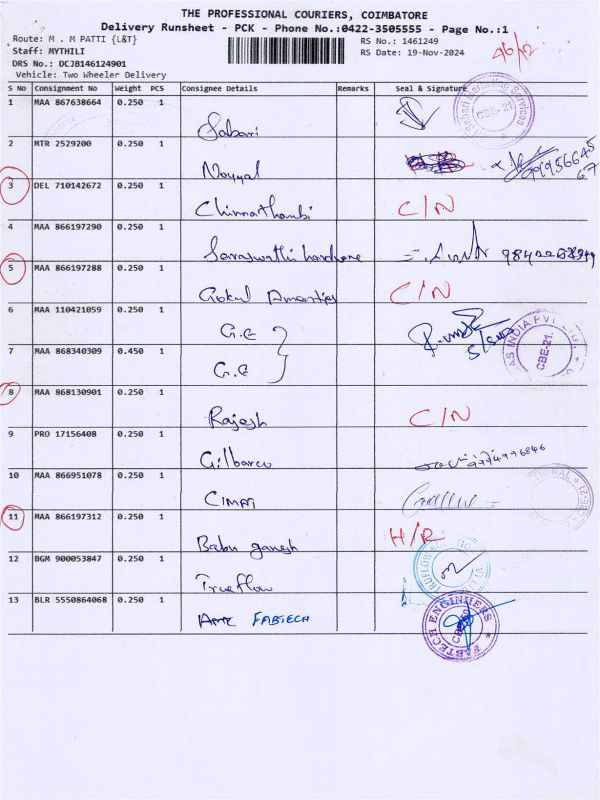 THE PROFESSIONAL COURIERS, COIMBATORE
Delivery Runsheet - PCK - Phone No.:0422-3505555 - Page No.:1
Route: M . M PATTI {L&T} RS No.: 1461249
Staff: MYTHILI RS Date: 19-Nov-2024
DRS No.: DCJB146124901
Vehicle: Two Wheeler Delivery
S No Consignment No Weight PCS Consignee Details Remarks Seal & Signature
1 MAA 867638664 0.250 1 Sabari CBE-21
2 MTR 2529200 0.250 1 Nayyal
3 DEL 710142672 0.250 1 Chinnathambi C/N
4 MAA 866197290 0.250 1 Saraswathi hardware
5 MAA 866197288 0.250 1 Gokul C/N
6 MAA 110421059 0.250 1 G.E
AS INDIA PVT. CBE-21.
7 MAA 868340309 0.450 1 G.E
8 MAA 868130901 0.250 1 Rajesh C/N
9 PRO 17156408 0.250 1 Gilbarco
10 MAA 866951078 0.250 1
11 MAA 866197312 0.250 1 Babu ganesh H/R
12 BGM 900053847 0.250 1 Trueflow
13 BLR 5550864068 0.250 1 FABTECH
FABTECH ENGINEERS